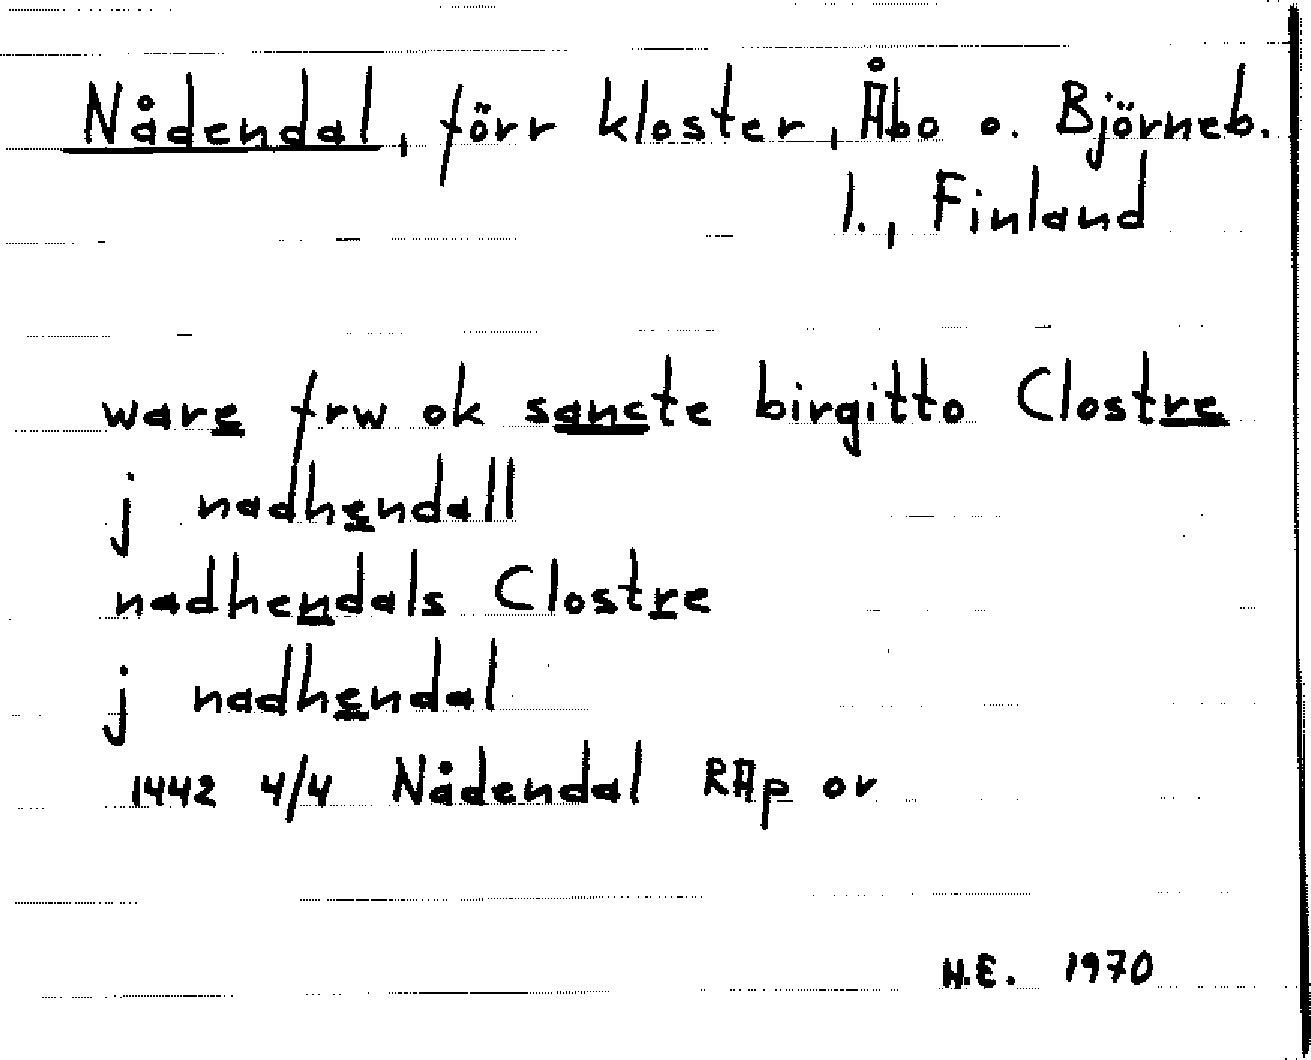 Nådendal, förr kloster, Åbo o. Björneb.
l., Finland
ware frw ok sancte birgitto Clostre
j nadhendall
nadhendals Clostre
j nadhendal
1442 4/4 Nådendal RAp or
H.E. 1970